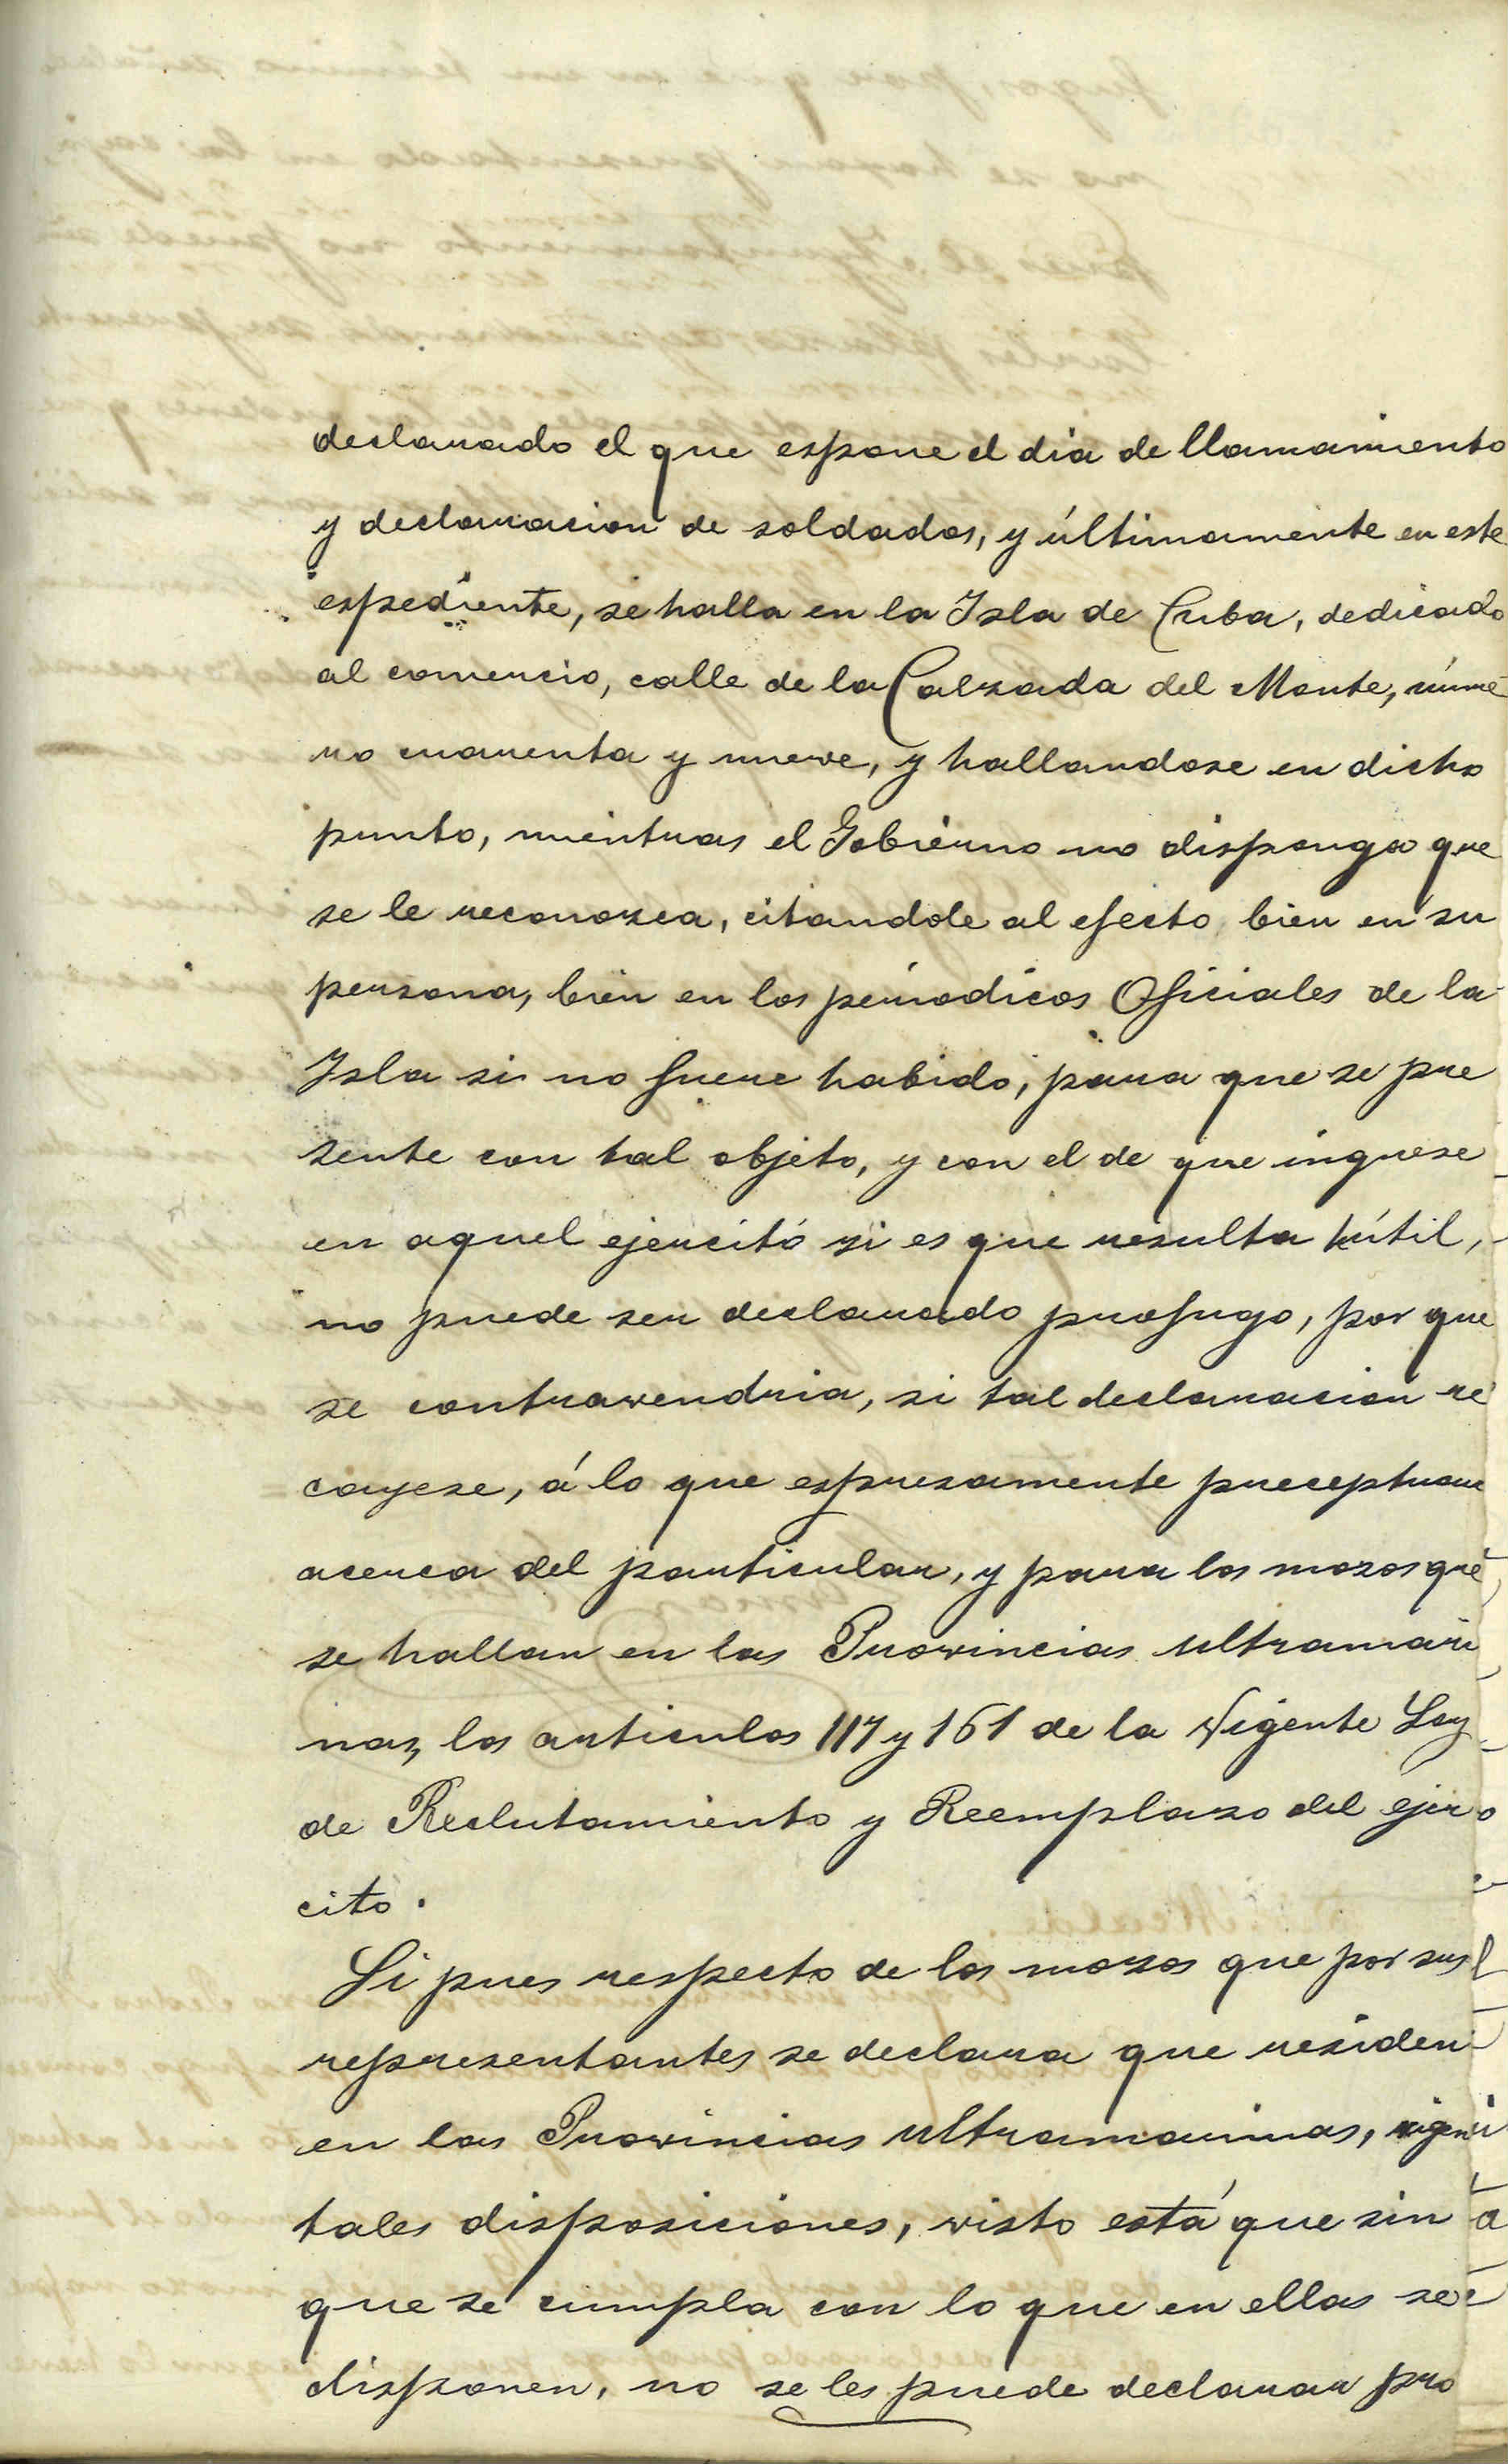 declarado el que espone el dia de llamamiento
y declaracion de soldados, y últimamente en este
espediente, se halla en la Isla de Cuba, dedicado
al comercio, calle de la Calzada del Monte, núme
ro cuarenta y nueve, y hallandose en dicho
punto, mientras el Gobierno no disponga que
se le reconozca, citandole al efecto bien en su
persona, bien en los periodicos Oficiales de la
Isla si no fuere habido, para que se pre
sente con tal objeto, y con el de que ingrese
en aquel ejercitó si es que resulta útil,
no puede ser declarado profugo, por que
se contravendria, si tal declaracion re
cayese, á lo que espresamente preceptuan
acerca del particular, y para los mozos que
se hallan en las Provincias ultramari
nas, los articulos 117 y 161 de la Vigente Ley
de Reclutamiento y Reemplazo del ejer
cito.
Si pues respecto de los mozos que por sus
representantes se declara que residen
en las Provincias ultramarinas, rigen
tales disposiciones, visto está que sin
que se cumpla con lo que en ellas se
disponen, no se les puede declarar pro